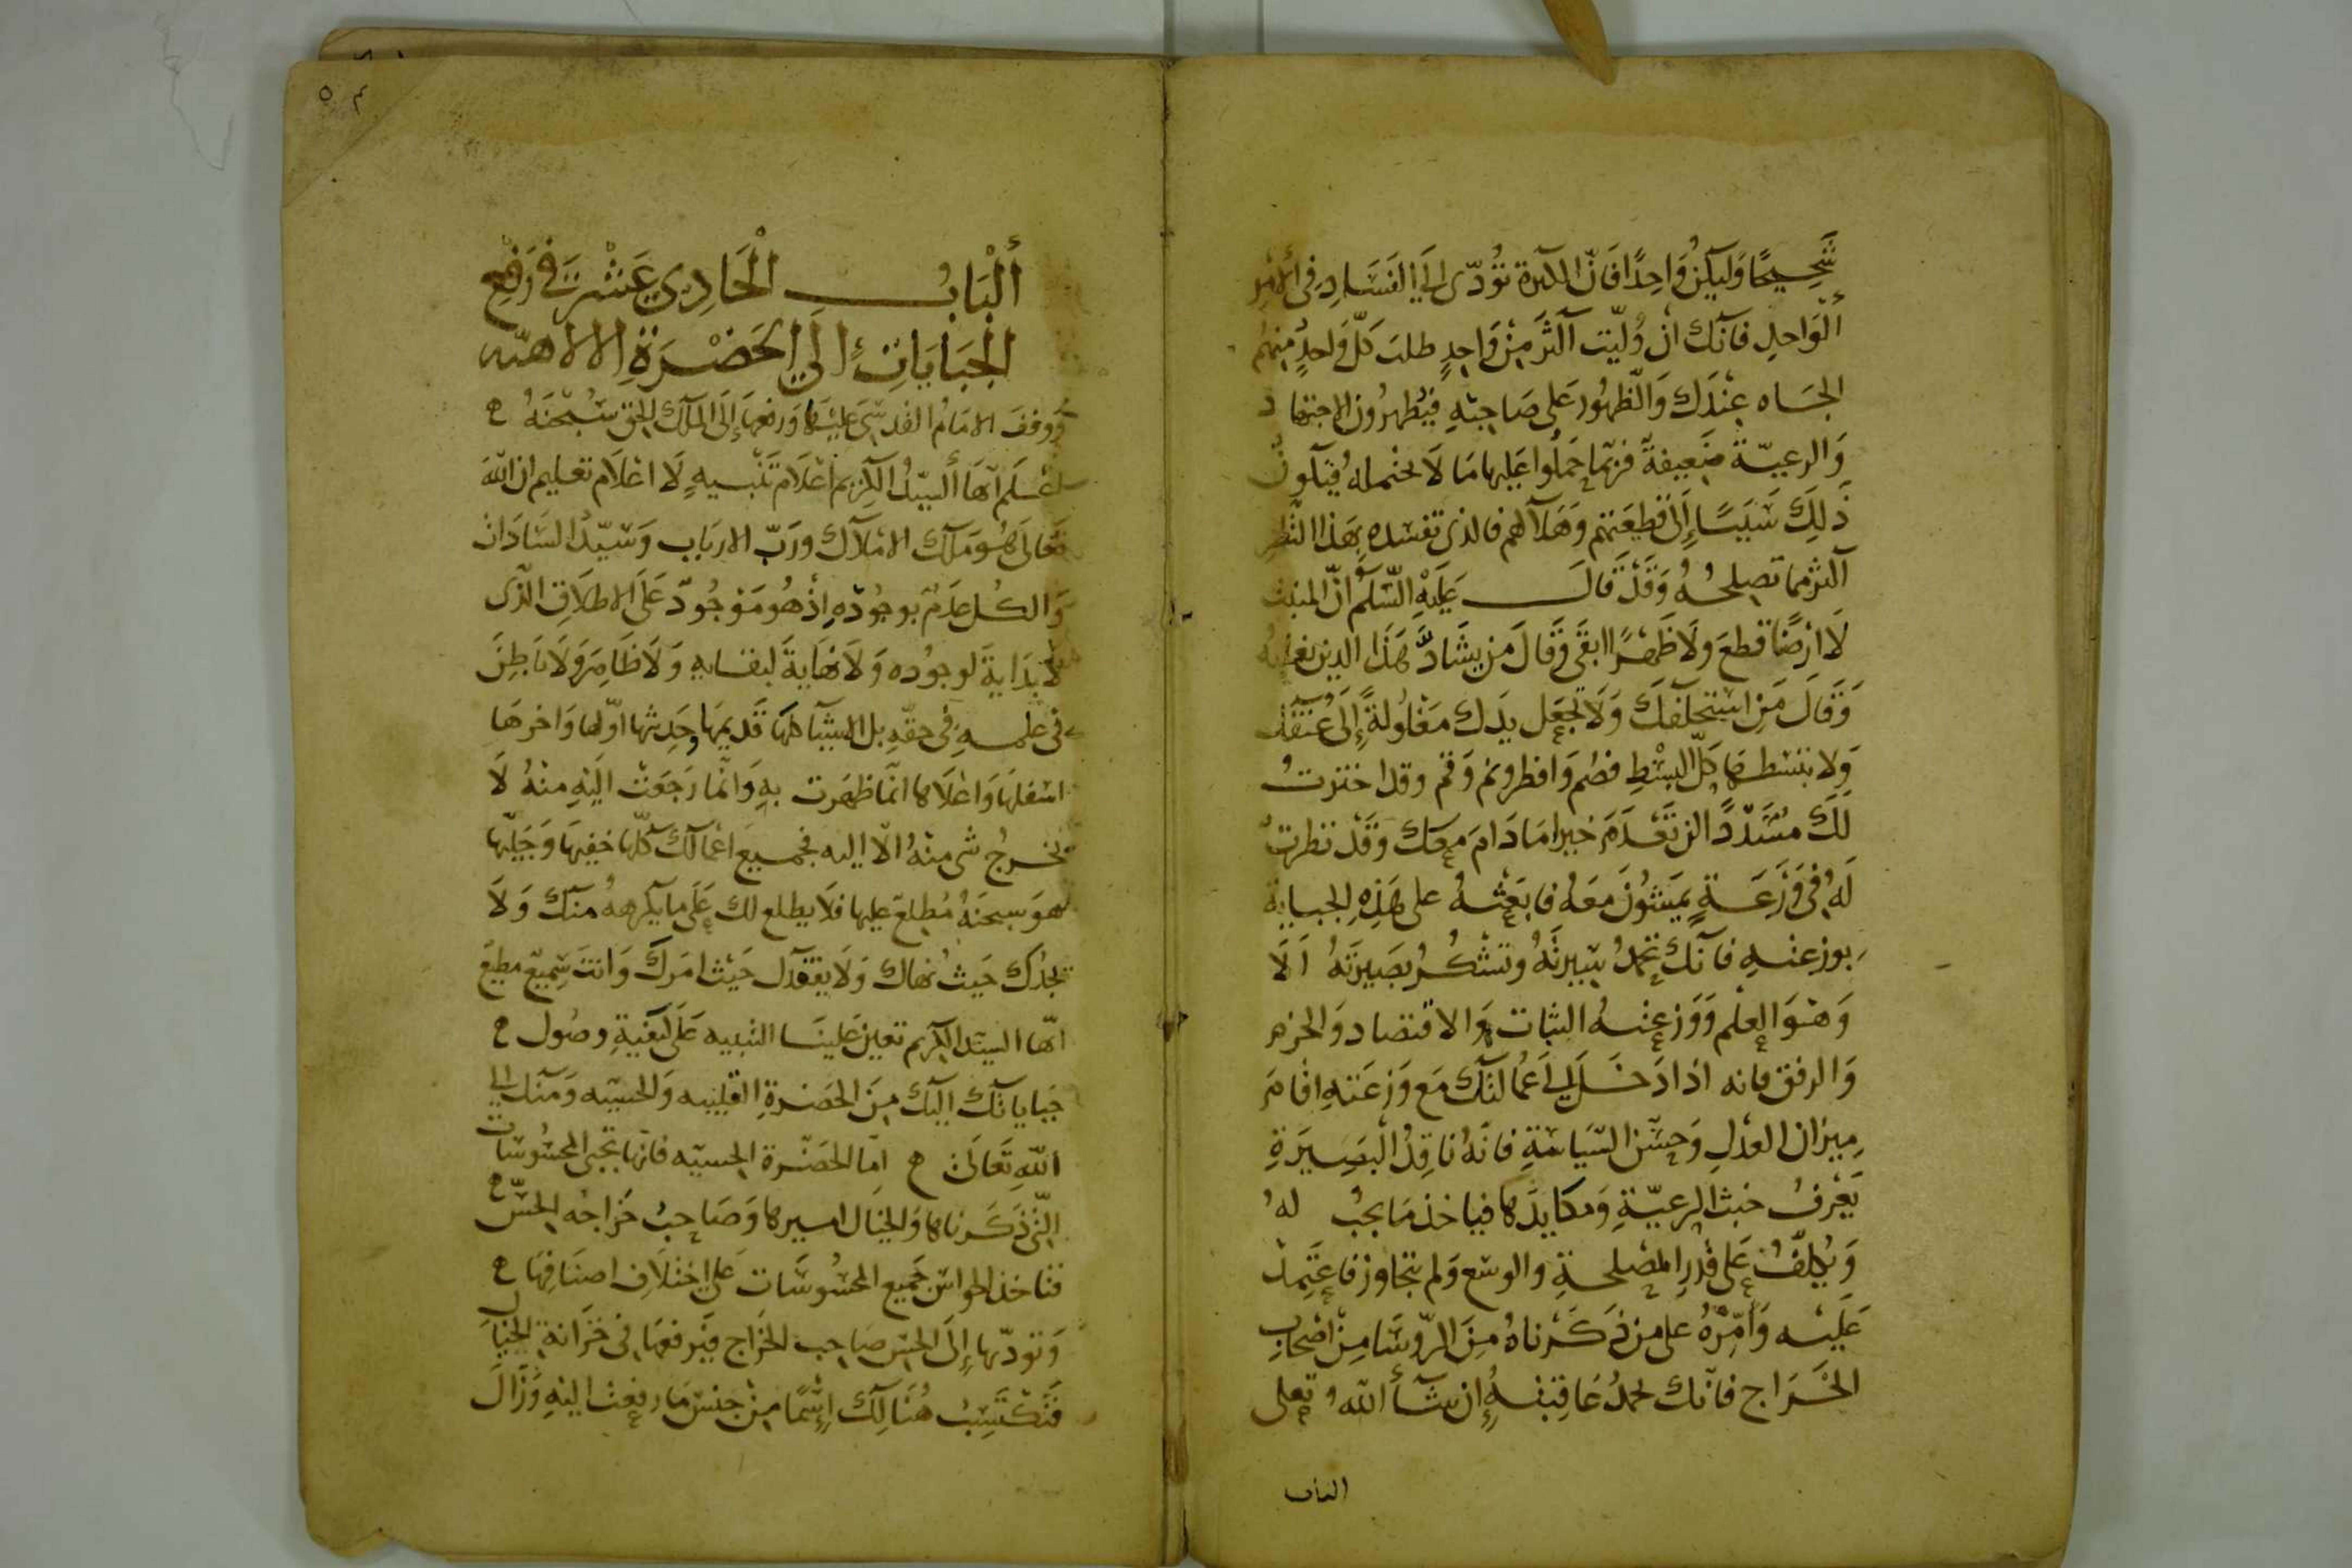 شَحِيحًا وَليكن وَاحِدًا فَانّ الكثرة تؤدّى الَي الفَسَادِ فِى الامر
الوَاحدِ فانّك ان وليّت اكثَر مِنْ وَاحِدٍ طلبَ كلّ وَاحدٍ منهُم
الجَاه عِنْدَك وَالظّهُور عَلى صَاحِبهِ فيُظهرُون الاجتها د
وَالرعيّة ضَعِيفة فربّما حَمَلُوا عَليها مَا لَا تحتمله فيكون
ذَلِكَ سَبَبًا إِلَى قطيعَتهم وَهَلاكهم فالذى تفسده بهَذا النظر
اكثر مما تصلحُهُ وَقَدْ قَالَ عَلَيْهِ السَّلَمُ انّ المنبت
لَا ارْضًا قطعَ ولَا ظَهْرًا ابقَى وَقَالَ مَن يشَادَّ هَذَا الدين يغلبهُ
وَقَالَ مَن استخلفَكَ وَلَا تجْعَل يدَك مَغْلُولَةً إِلَى عُنقك
وَلا تبسُطهَا كلّ البسْطِ فصُم وَافطر ونم وَقم وقد اخترتُ
لَكَ مُسَدّدًا لن تَعْدَمَ خيرا مَا دَامَ معَك وَقَدْ نظرتُ
لَهُ فِى وَزَعَةٍ يمشُونَ مَعَهُ فابعَثهُ على هَذِهِ الجباية
بوزعتهِ فانّك تحمدُ سِيرتَهُ وتشْكُرُ بصَيرَتَهُ الَا
وَهْوَ العِلم وَوَزعته الثبات وَالاقتصاد وَالحزم
وَالرفق فانه اذا دَخَلَ الي اعمَالك مَع وَزعَتهِ اقَامَ
مِيزان العَدلِ وَحسْن السّيَاسَةِ فانّهُ ناقِدُ الْبَصِيرَةِ
يَعْرفُ خبث الرعيّةِ وَمكايدَها فياخذ مَا يجبُ لهُ
وَيُكلّفُ عَلى قدرِ المصْلحةِ والوسْع وَلم يتجاوز فاعتَمِدْ
عَلَيْه وَأَمِّرْهُ على من ذَكَرْناهُ مِنَ الرّوسَا مِنْ اصْحَابِ
الخَرَاج فانّك تحمدُ عَاقِبَتهُ إِن شَآ اللهُ تعلى
الباب
ألْبَابُ الْحَادِي عَشْرَ فى رَفْعِ
الجَبَايَاتِ الَي الحَضْرَةِ الالاهيّه
وَوقفَ الامَامُ القدسيّ عَليْهَا وَرفعهَا إِلَى المَلِك الحق سُبْحَنَهُ
اعْلَم ايّهَا السيّدُ الكَرِيم اعْلَام تَنْبيهٍ لَا اعْلَام تعليم ان الله
تَعَالَى هُوَ مَلِك الامْلَاك ورَبّ الارْبَاب وَسَيّدُ السَادَات
وَالكُل عدَمٌ بوجُودِهِ اذْ هُو مَوْجُودٌ عَلَى الاطلَاقِ الّذى
لَا بِدَايةَ لوجُوده وَلَا نهَايةَ لبقايهِ وَلَا ظَاهِرَ وَلَا بَاطِنَ
فى علمهِ فى حَقّهِ بل الاشيَا كلهَا قَديمهَا وحَدِيثها اوّلها وَاخرهَا
اسْفلهَا وَاعْلَاها انّمَا ظهَرت بهِ وَانّمَا رَجَعَتْ الَيْهِ منْهُ لَا
يخرجُ شى منْهُ الّا اليه فجميعَ اعْمَالك كلّها خفِيهَا وَجَليّها
هوَ سبحَنهُ مُطلعٌ عليها فلَا يطلع لك عَلَى مَا يكرههُ منكَ وَلَا
يجدُكَ حَيثُ نهَاك وَلَا يفقدك حَيْث امَركَ وَانتَ سَمِيعٌ مطيعٌ
ايّها السيّد الكريم تعين عَلينَا التنبيه عَلَى كيفيةِ وصُول
جَباياتك اليكَ مِنَ الحَضرَةِ القلبيه وَالحسيّه وَمنك الي
اللهِ تَعَالَى امّا الحَضْرة الحسيّه فانّها تجبى المحسُوسَات
الّتى ذَكَرناها وَالخيَال اميرها وَصَاحبُ خَراجه الحسّ
فتاخذ الحواسّ جَميع المحسُوسَات عَلى اختلَافِ اصنَافِهَا
وَتودّيها إِلَى الحسّ صَاحِب الخَرَاج فيَرفعهَا فى خَزَانة الخيَال
فَتَكتَسِبُ هُنَالِكَ إِسْمًا مِنْ جنس مَا رفعَتْ اليْهِ وَزَالَ